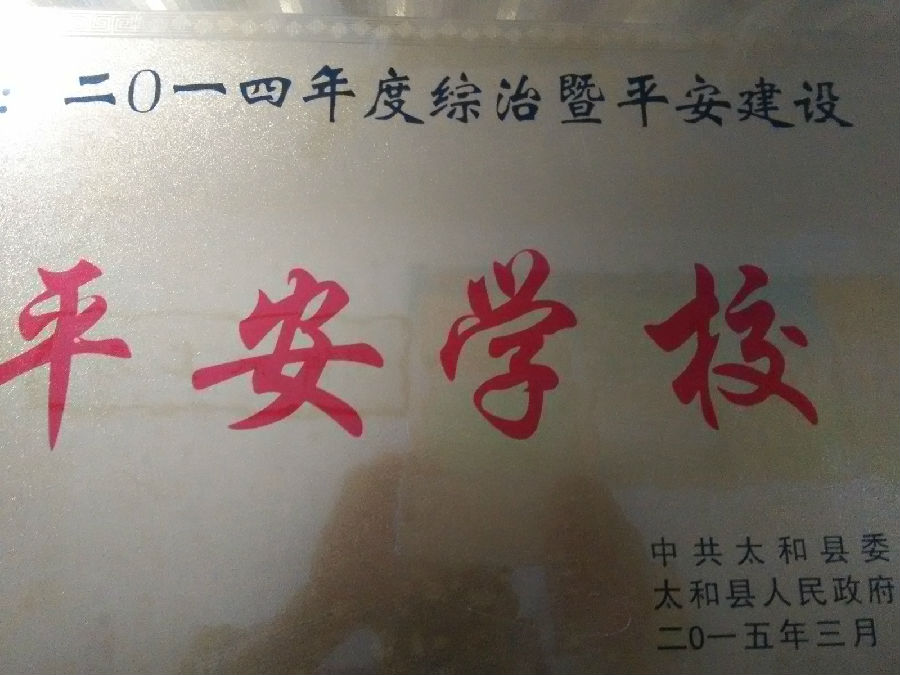 : 二〇一四年度综治暨平安建设
平安学校
中共太和县委
太和县人民政府
二〇一五年三月